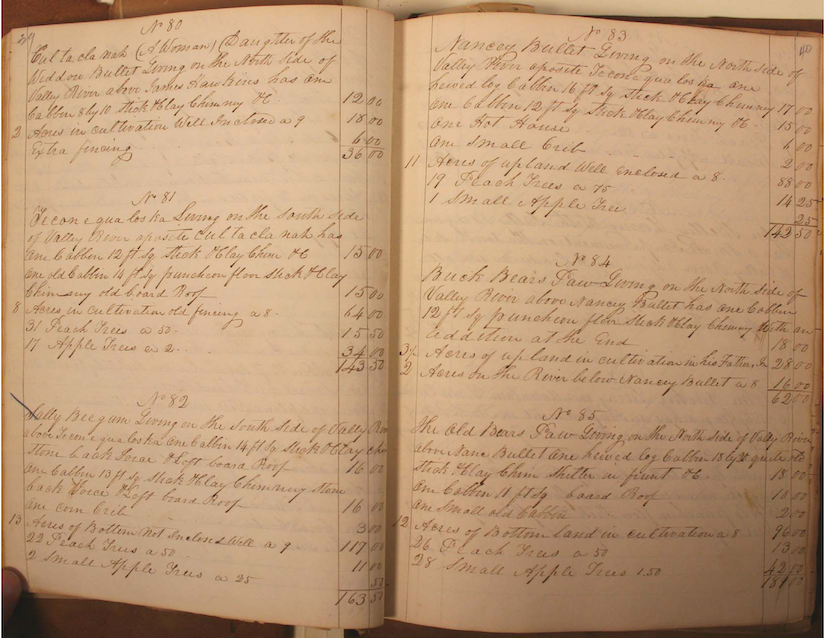 39
No 80
Cul ta cla nah (A Woman) (Daughter of the
Widdow Bullet Living on the North Side of
Valley River above James Hawkins has one
Cabbin 8 by 10 Stick & Clay Chimny &C 12 00
2 Acres in cultivation Well Inclosed a 9 18 00
Extra fincing 6 00
36 00
No 81
Te con e qua los ka Living on the South Side
of Valley River aposite Cul ta cla nah has
one Cabbin 12 ft Sq Stick & Clay Chim &C 15 00
one old Cabbin 14 ft Sq puncheon floor Stick & Clay
Chimney old board Roof 15 00
8 Acres in cultivation old fincing a 8 64 00
31 Peach Trees a 50 15 50
17 Apple Trees a 2 34 00
143 50
No 82
Sally Beegum Living on the South Side of Valley River
above Te con e qua los ka one Cabbin 14 ft Sq Stick & Clay Chim
Stone back Force & Loft board Roof 16 00
one Cabbin 13 ft Sq Stick & Clay Chimney Stone
back Force & Loft board Roof 16 00
one corn Crib 3 00
13 Acres of Bottom Not Inclosed Well a 9 117 00
22 Peach Trees a 50 11 00
2 Small Apple Trees a 25 50
163 50
40
No 83
Nancey Bullet Living on the North Side of
Valley River aposite Te con e qua los ka one
hewed log Cabbin 16 ft Sq Stick & Clay Chimney 17 00
one Cabbin 12 ft Sq Stick & Clay Chimney &C 15 00
one Hot House 6 00
one Small Crib 2 00
11 Acres of upland Well Enclosed a 8 88 00
19 Peach Trees a 75 14 25
1 Small Apple Tree 25
142 50
No 84
Buck Bears Paw Living on the North Side of
Valley River above Nancey Bullet has one Cabbin
12 ft Sq puncheon floor Stick & Clay Chimney With an
addition at the End 18 00
3½ Acres of upland in cultivation in his Fathers 28 00
2 Acres on the River below Nancey Bullet a 8 16 00
62 00
No 85
The Old Bears Paw Living on the North Side of Valley River
above Nanc Bullet one hewed log Cabbin 13 by
Stick & Clay Chim Shelter in frunt &C 18 00
one Cabbin 11 ft Sq board Roof 10 00
one Small old Cabbin 2 00
12 Acres of Bottom land in cultivation a 8 96 00
26 Peach Trees a 50 13 00
28 Small Apple Trees 1.50 42 00
181 00